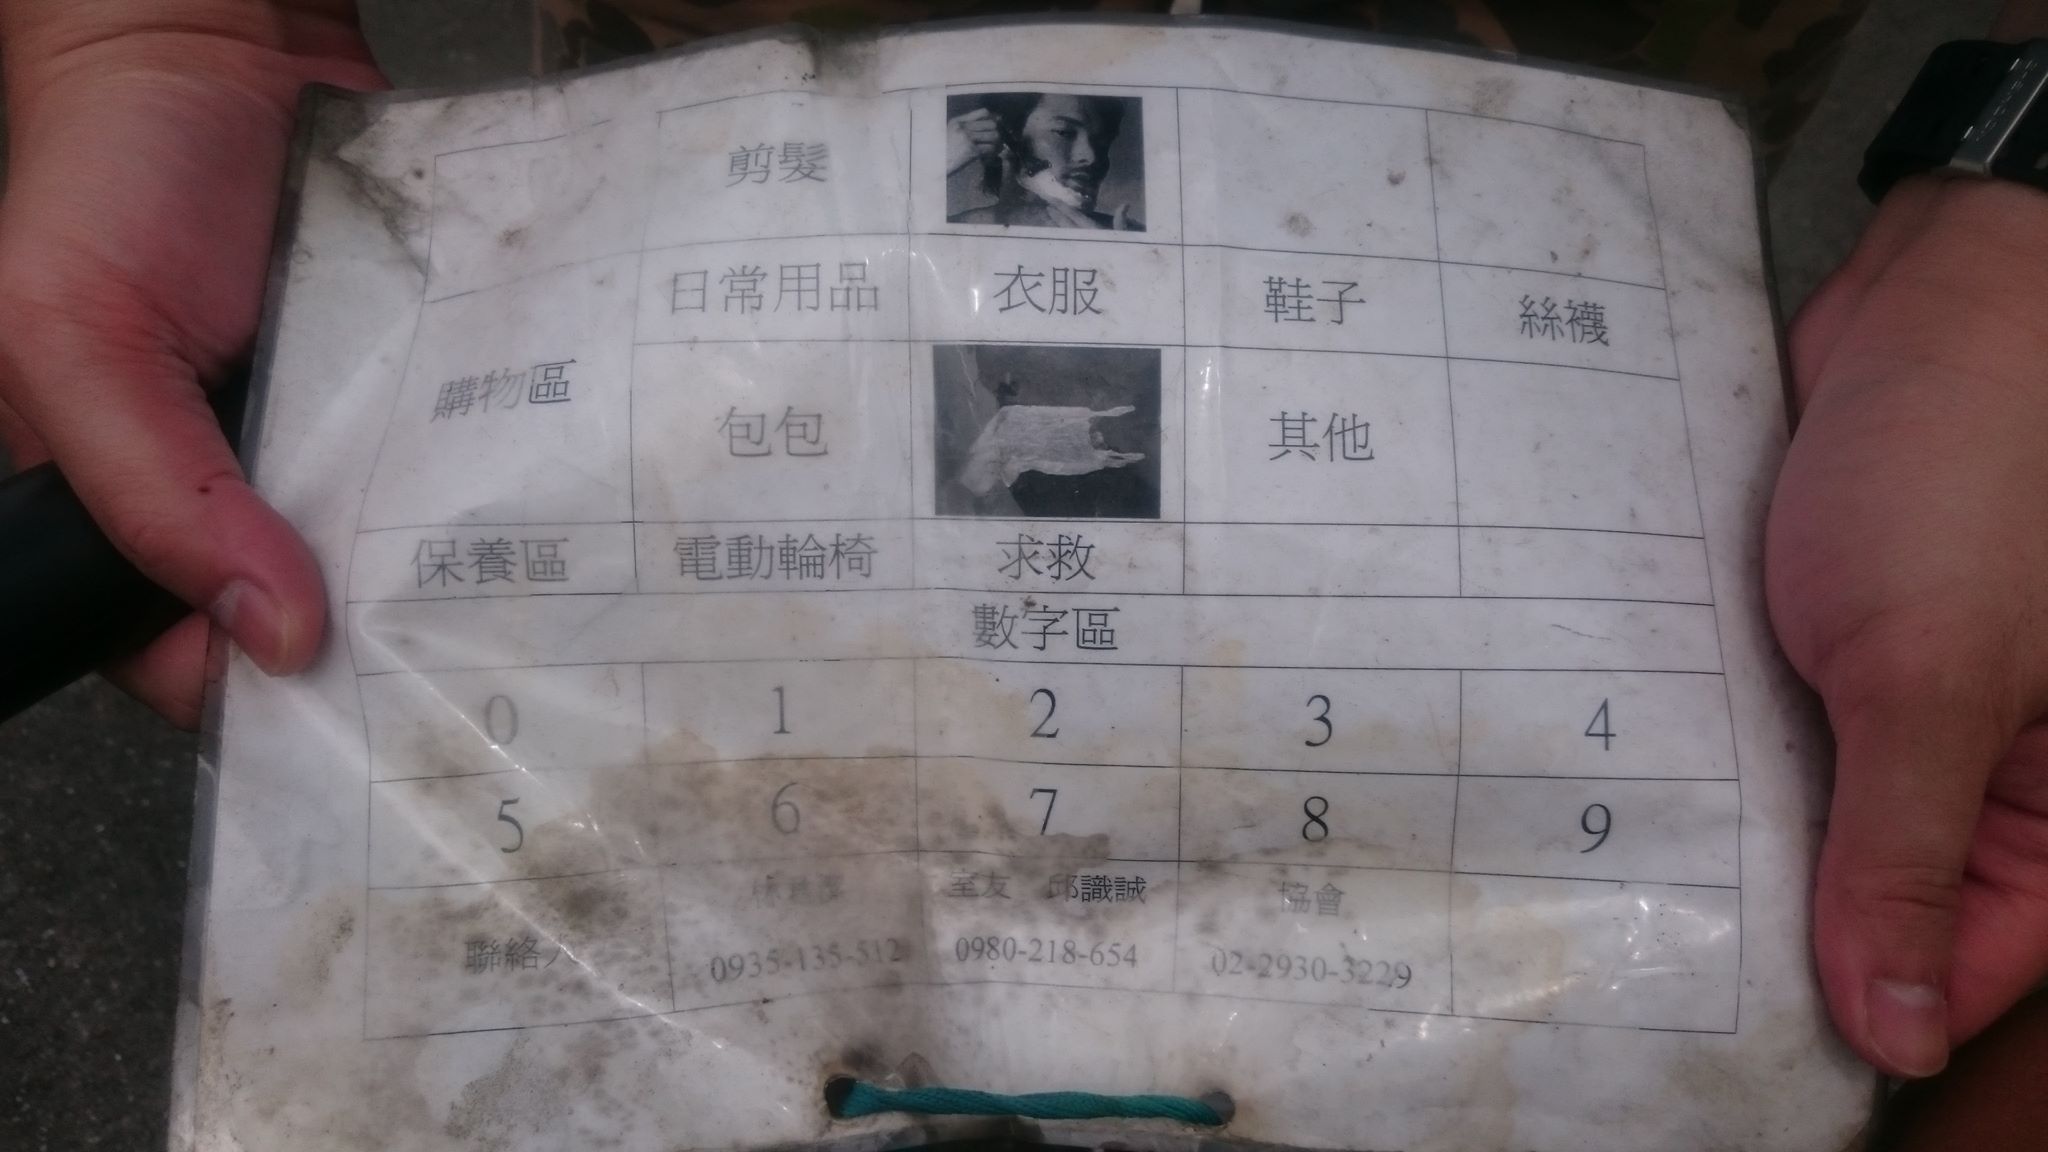 剪髮
日常用品 衣服 鞋子 絲襪
購物區 包包 其他
保養區 電動輪椅 求救
數字區
0 1 2 3 4
5 6 7 8 9
室友 邱識誠 協會
聯絡人 0935-135-512 0980-218-654 02-2930-3229